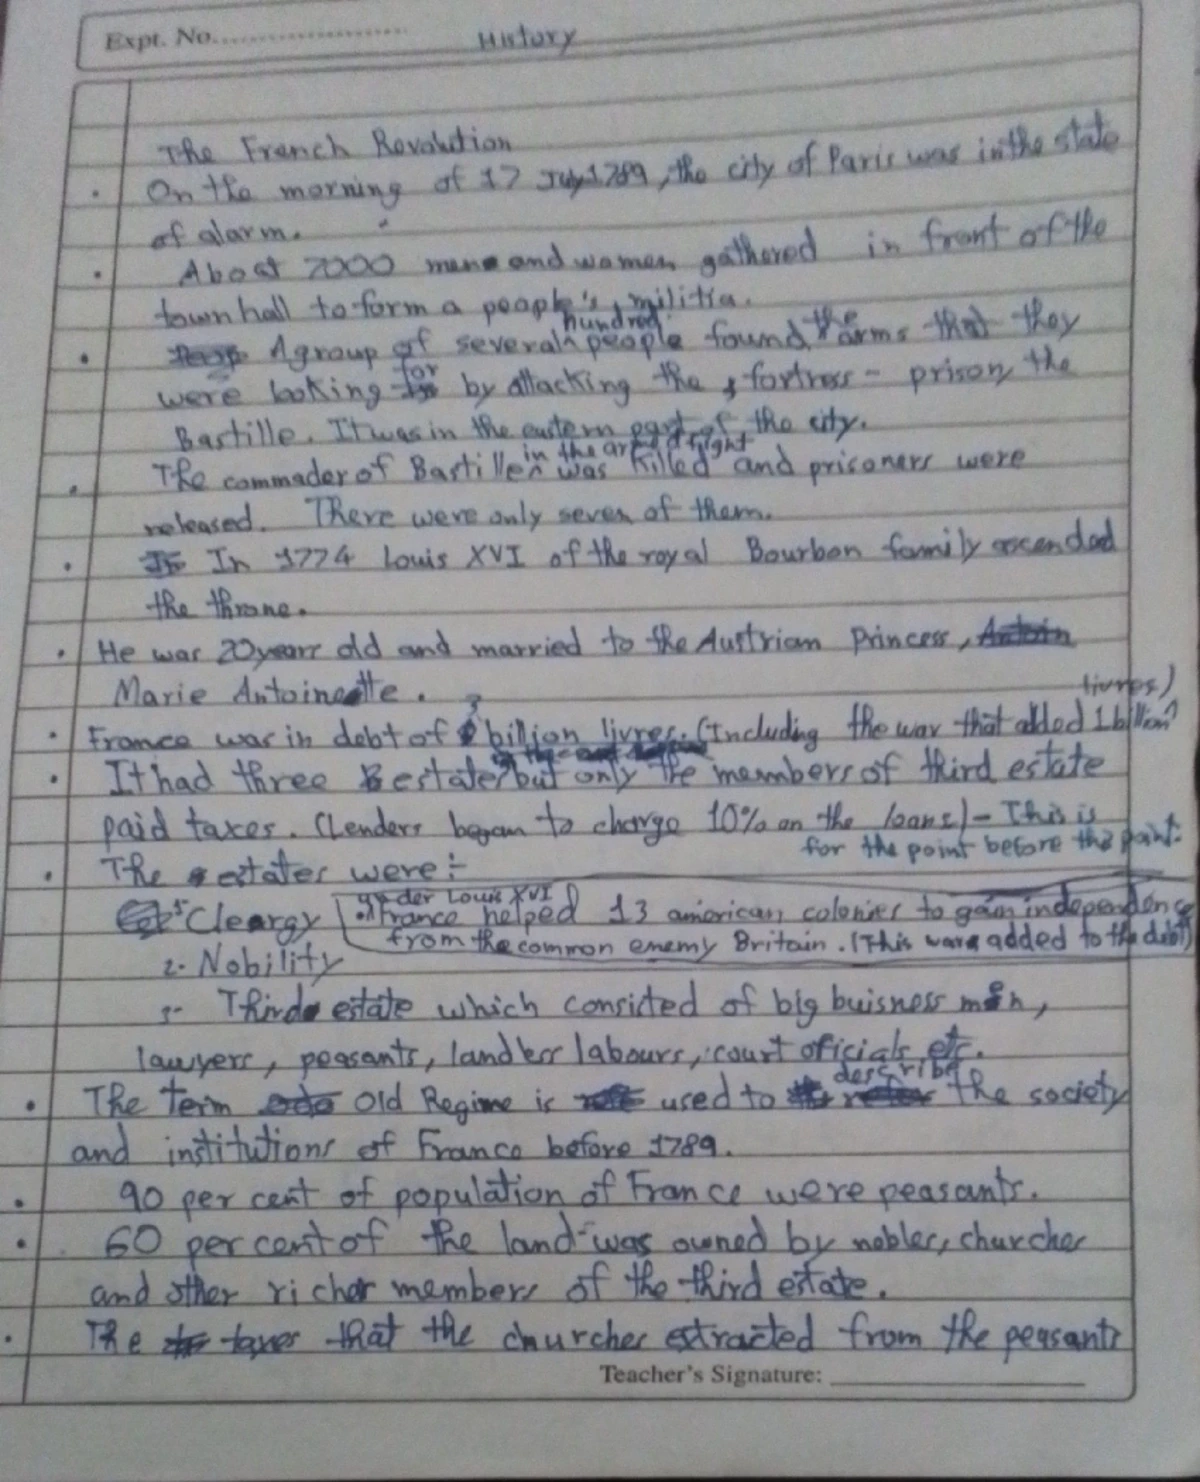 Expt. No.
History
The French Revolution
· On the morning of 17 July 1789, the city of Paris was in the state
of alarm.
· About 7000 men and women gathered in front of the
town hall to form a people's militia.
· A group of several hundred people found the arms that they
were looking for by attacking the fortress - prison, the
Bastille. It was in the eastern part of the city.
· The commader of Bastille in the armed fight was killed and prisoners were
released. There were only seven of them.
· In 1774 Louis XVI of the royal Bourbon family ascended
the throne.
· He was 20 years old and married to the Austrian Princess,
Marie Antoinette.
· France was in debt of 3 billion livres. (Including the war that added 1 billion livres)
· It had three estates but only the members of third estate
paid taxes. (Lenders began to charge 10% on the loans) - This is
for the point before this point.
· The estates were :-
1- Cleargy
under Louis XVI
· France helped 13 american colonies to gain independence
from the common enemy Britain. (This war added to the debt)
2- Nobility
3- Third estate which consisted of big buisness men,
lawyers, peasants, landless labours, court oficials, etc.
· The term Old Regime is used to describe the society
and institutions of France before 1789.
· 90 per cent of population of France were peasants.
· 60 per cent of the land was owned by nobles, churches
and other richer members of the third estate.
· The taxes that the churches extracted from the peasants
Teacher's Signature: